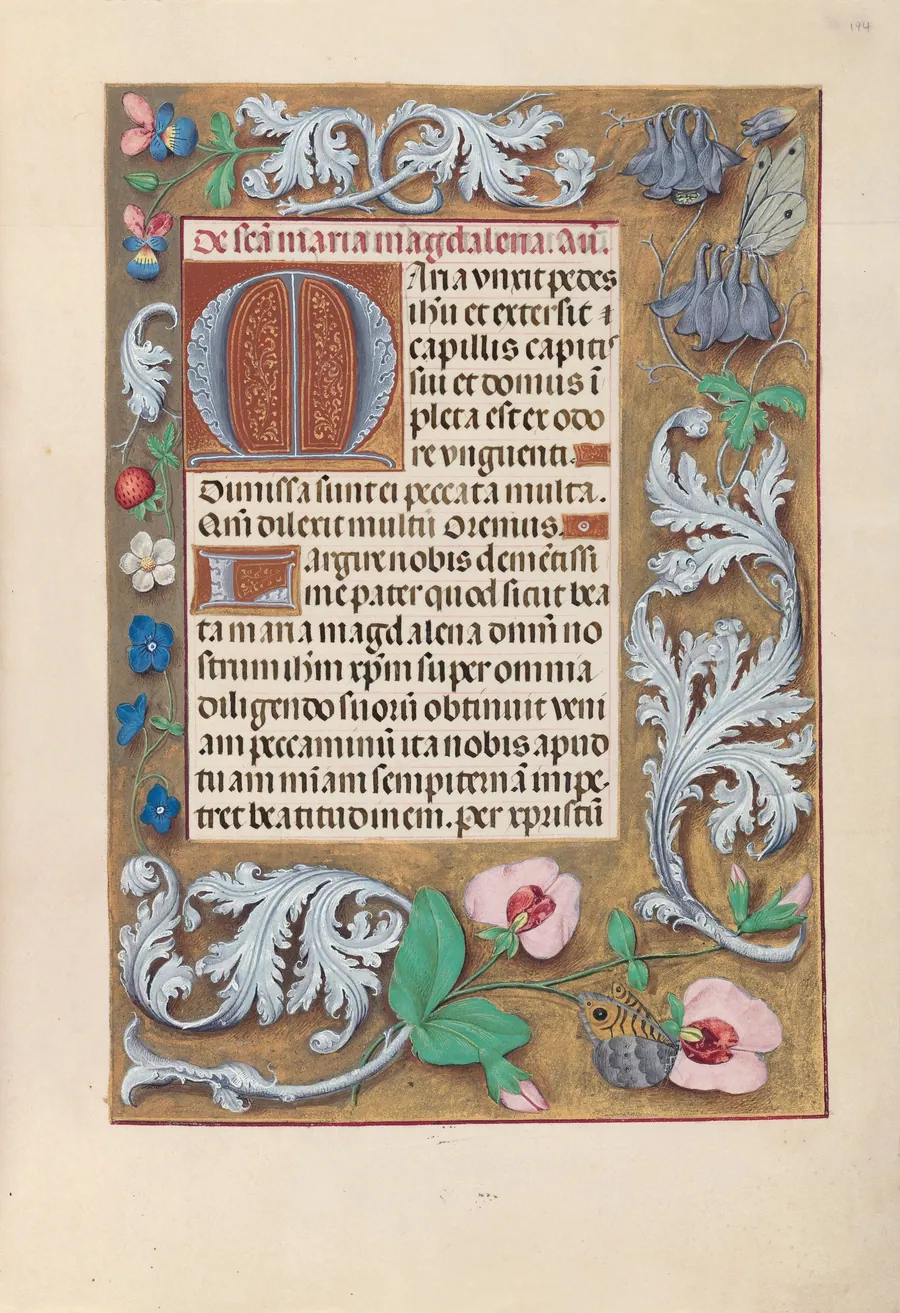 194
De scā maria magdalena. Añ.
Maria vnxit pedes
ihū et extersit ⁊
capillis capitis
sui et domus ī
pleta est ex odo
re vnguenti.
Dimissa sunt ei peccata multa.
Qm̄ dilexit multū Oremus.
Largire nobis clemētissi
me pater quod sicut bea
ta maria magdalena dm̄m no
strum ihm̄ xpm̄ super omnia
diligendo suorū obtinuit veni
am peccaminū ita nobis apud
tuam miam sempiternā impe-
tret beatitudinem. per xpristū